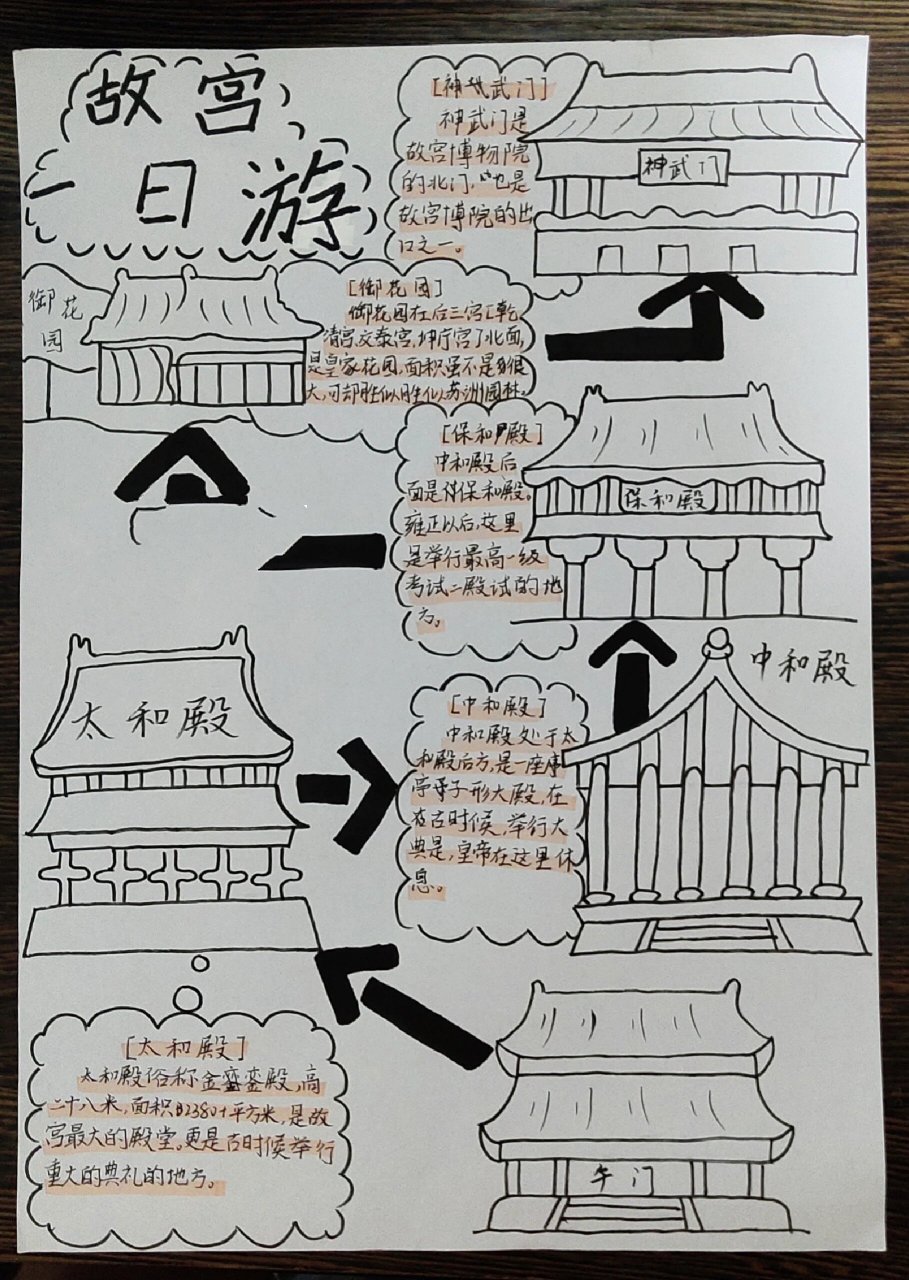 故宫
一日游
[神武门]
神武门是
故宫博物院
的北门,也是
故宫博院的出
口之一。
神武门
御花
园
[御花园]
御花园在后三宫[乾
清宫,交泰宫,坤宁宫]北面,
是皇家花园,面积虽不是很
大,可却胜似胜似苏洲园林。
[保和殿]
中和殿后
面是保和殿。
雍正以后,这里
是举行最高一级
考试二殿试的地
方。
保和殿
中和殿
太和殿
[中和殿]
中和殿处于太
和殿后方,是一座
亭子形大殿,在
古时候,举行大
典是,皇帝在这里休
息。
[太和殿]
太和殿俗称金銮殿,高
二十八米,面积2380平方米,是故
宫最大的殿堂。更是古时候举行
重大的典礼的地方。
午门